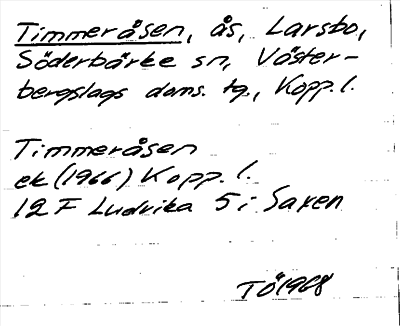 Timmeråsen, ås, Larsbo,
Söderbärke sn, Väster-
bergslags doms. tg., Kopp. l.
Timmeråsen
ek (1966) Kopp. l.
12 F Ludvika 5 i Saxen
TÖ 1968